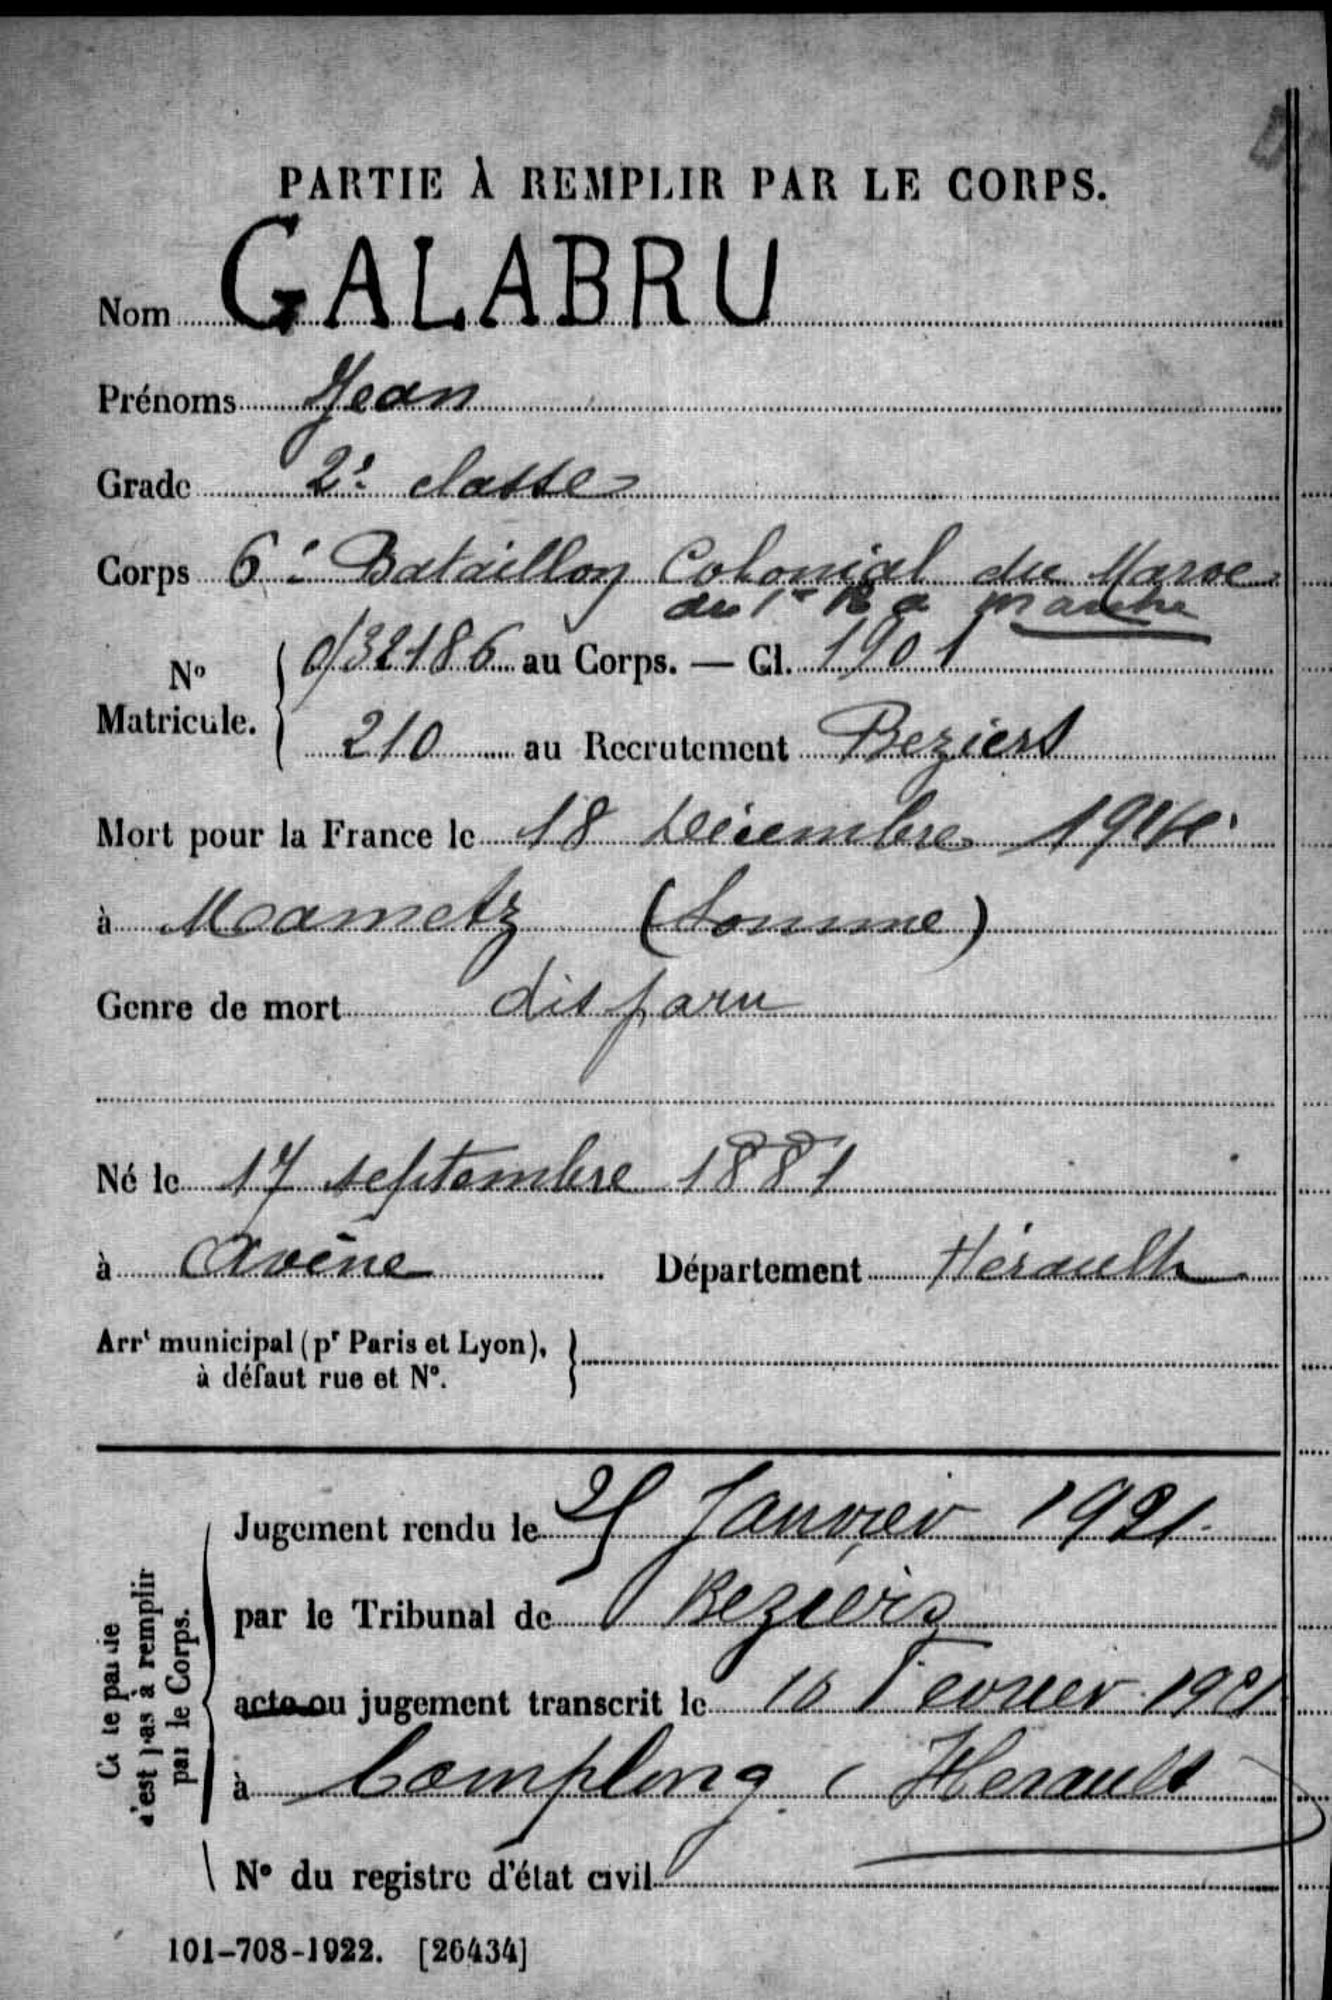 PARTIE À REMPLIR PAR LE CORPS.
Nom GALABRU
Prénoms Jean
Grade 2e classe
Corps 6e Bataillon Colonial du Maroc
du 1er R de marche
No Matricule. 0/32186 au Corps. — Cl. 1901
210 au Recrutement Beziers
Mort pour la France le 18 Décembre 1914
à Mametz (Somme)
Genre de mort disparu
Né le 17 septembre 1881
à Avène Département Hérault
Arrt municipal (pr Paris et Lyon),
à défaut rue et No.
Cette partie
n'est pas à remplir
par le Corps.
Jugement rendu le 25 Janvier 1921.
par le Tribunal de Beziers
acte ou jugement transcrit le 16 Fevrier 1921
à Camplong (Herault
No du registre d'état civil
101-708-1922. [26434]